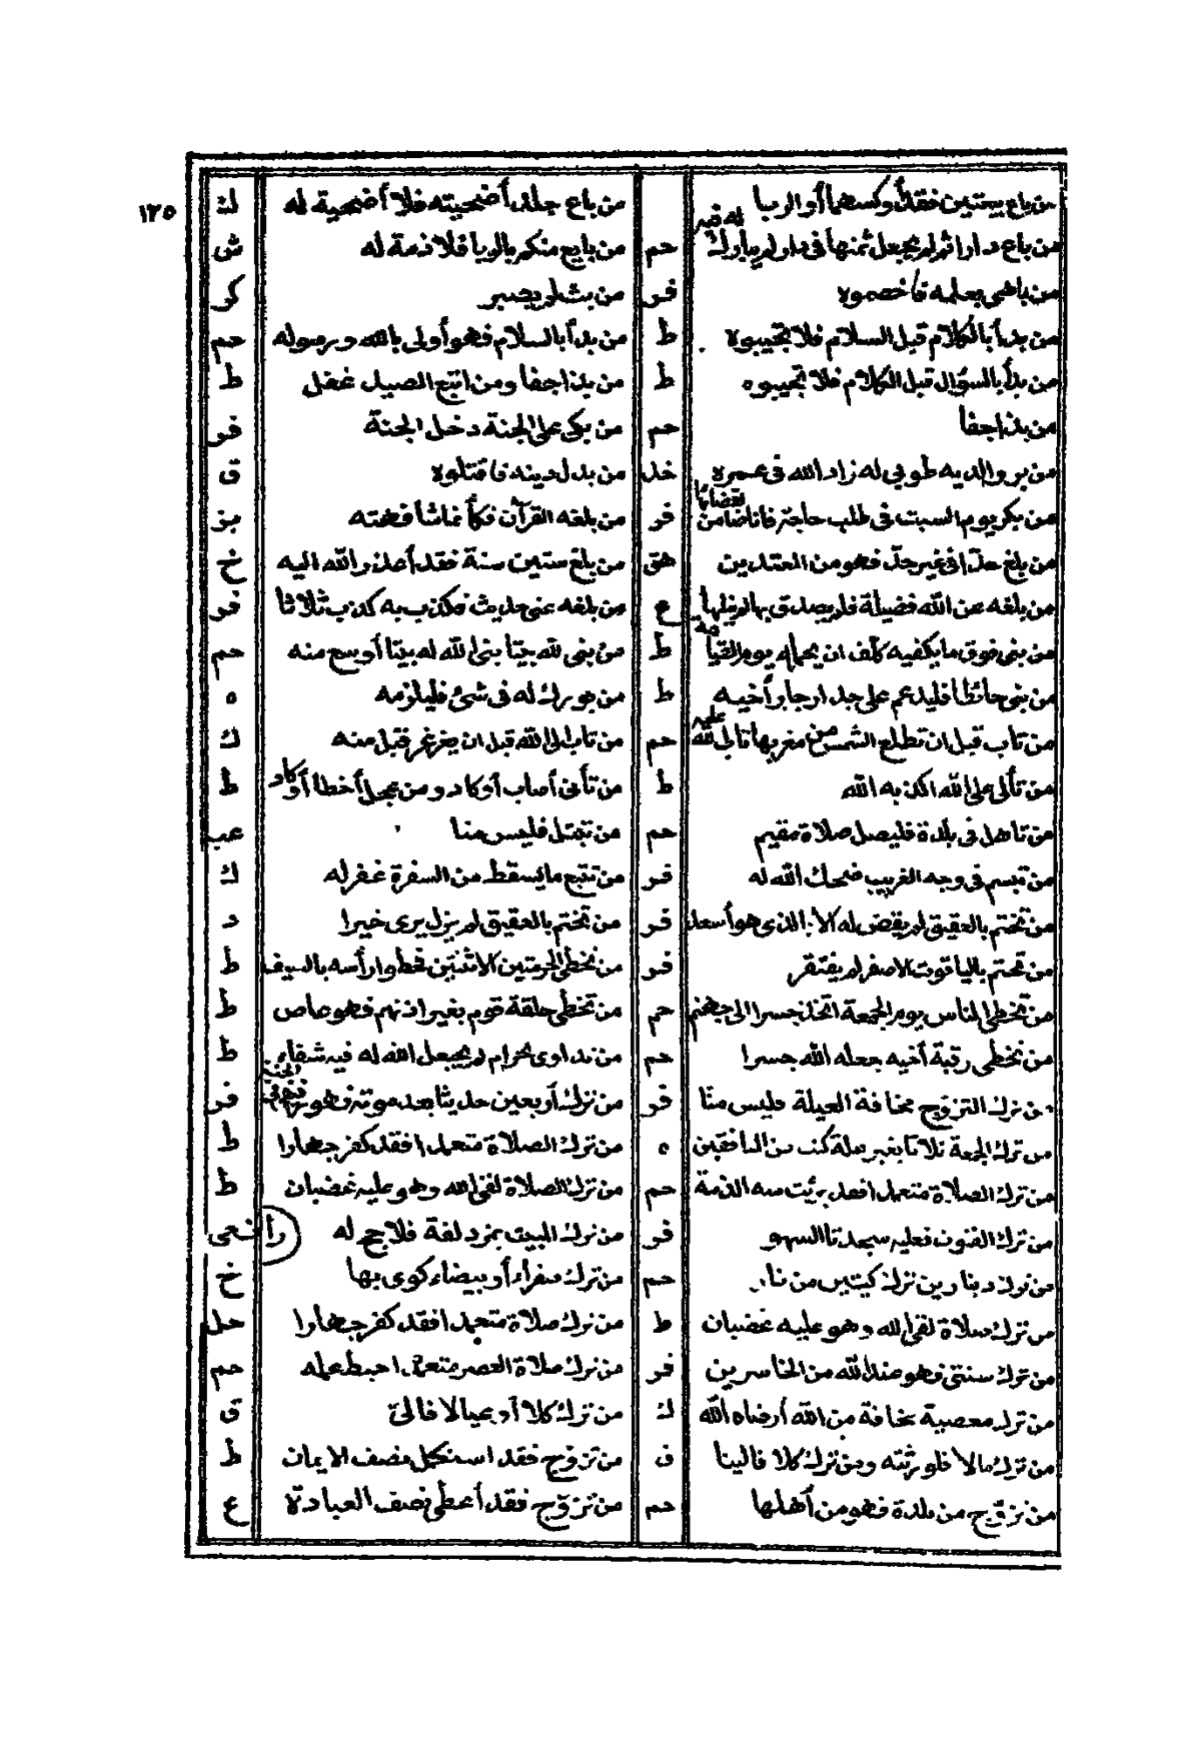 ١٢٥
من باع بيعتين فقله أوكسهما أو الربا من باع جلد أضحيته فلا أضحية له ك
من باع دارا ثم لم يجعل ثمنها في دار لم يبارك له فيه حم من بايع منكم بالربا فلا ذمة له ش
من باهى بعلمه فاخصموه فر من بث لم يصبر كر
من بدأ بالكلام قبل السلام فلا تجيبوه ط من بدأ بالسلام فهو أولى بالله ورسوله حم
من بدأ بالسؤال قبل الكلام فلا تجيبوه ط من بدا جفا ومن اتبع الصيد غفل ط
من بدا جفا حم من بكى على الجنة دخل الجنة فر
من بر والديه طوبى له زاد الله في عمره خد من بدل دينه فاقتلوه ق
من بكر يوم السبت في طلب حاجة فانا ضامن لقضائها فر من بلغه القرآن فكأنما شافهته بز
من بلغ حدا في غير حد فهو من المعتدين هق من بلغ ستين سنة فقد أعذر الله اليه خ
من بلغه عن الله فضيلة فلم يصدق بها لم ينلها ع من بلغه عني حديث فكذب به كذب ثلاثا فر
من بنى فوق ما يكفيه كلف ان يحمله يوم القيامه ط من بنى لله بيتا بنى الله له بيتا أوسع منه حم
من بنى حائطا فليدعم على جدار جاره أخيه ط من بورك له في شئ فليلزمه ه
من تاب قبل ان تطلع الشمس من مغربها تاب الله عليه حم من تاب الى الله قبل ان يغرغر قبل منه ك
من تألى على الله اكذبه الله ط من تأنى أصاب أو كاد ومن عجل أخطأ أو كاد ط
من تاهل في بلدة فليصل صلاة مقيم حم من تبتل فليس منا عب
من تبسم في وجه الغريب ضحك الله له فر من تتبع ما يسقط من السفرة غفر له ك
من تختم بالعقيق لم يقض له الا بالذى هو أسعد فر من تختم بالعقيق لم يزل يرى خيرا د
من تختم بالياقوت الاصفر لم يفتقر فر من تخطى الحرمتين الاثنتين فخطوا رأسه بالسيف ط
من تخطى الناس يوم الجمعة اتخذ جسرا الى جهنم حم من تخطى حلقة قوم بغير اذنهم فهو عاص ط
من تخطى رقبة أخيه جعله الله جسرا حم من تداوى بحرام لم يجعل الله له فيه شفاء ط
من ترك التزوج مخافة العيلة فليس منا فر من ترك أربعين حديثا بعد موته فهو رفيقى في الجنة فر
من ترك الجمعة ثلاثا بغير علة كتب من المنافقين ه من ترك الصلاة متعمدا فقد كفر جهارا ط
من ترك الصلاة متعمدا فقد برئت منه الذمة حم من ترك الصلاة لقى الله وهو عليه غضبان ط
من ترك القنوت فعليه سجدتا السهو فر من ترك المبيت بمزدلفة فلا حج له رافعى
من ترك دينارين ترك كيتين من نار حم من ترك صفراء أو بيضاء كوى بها خ
من ترك صلاة لقى الله وهو عليه غضبان ط من ترك صلاة متعمدا فقد كفر جهارا حل
من ترك سنتي فهو عند الله من الخاسرين فر من ترك صلاة العصر متعمدا احبط عمله حم
من ترك معصية مخافة من الله أرضاه الله ك من ترك كلا أو عيالا فالى ق
من ترك مالا فلورثته ومن ترك كلا فالينا ق من تزوج فقد استكمل نصف الايمان ط
من تزوج من بلدة فهو من أهلها حم من تزوج فقد أعطى نصف العبادة ع